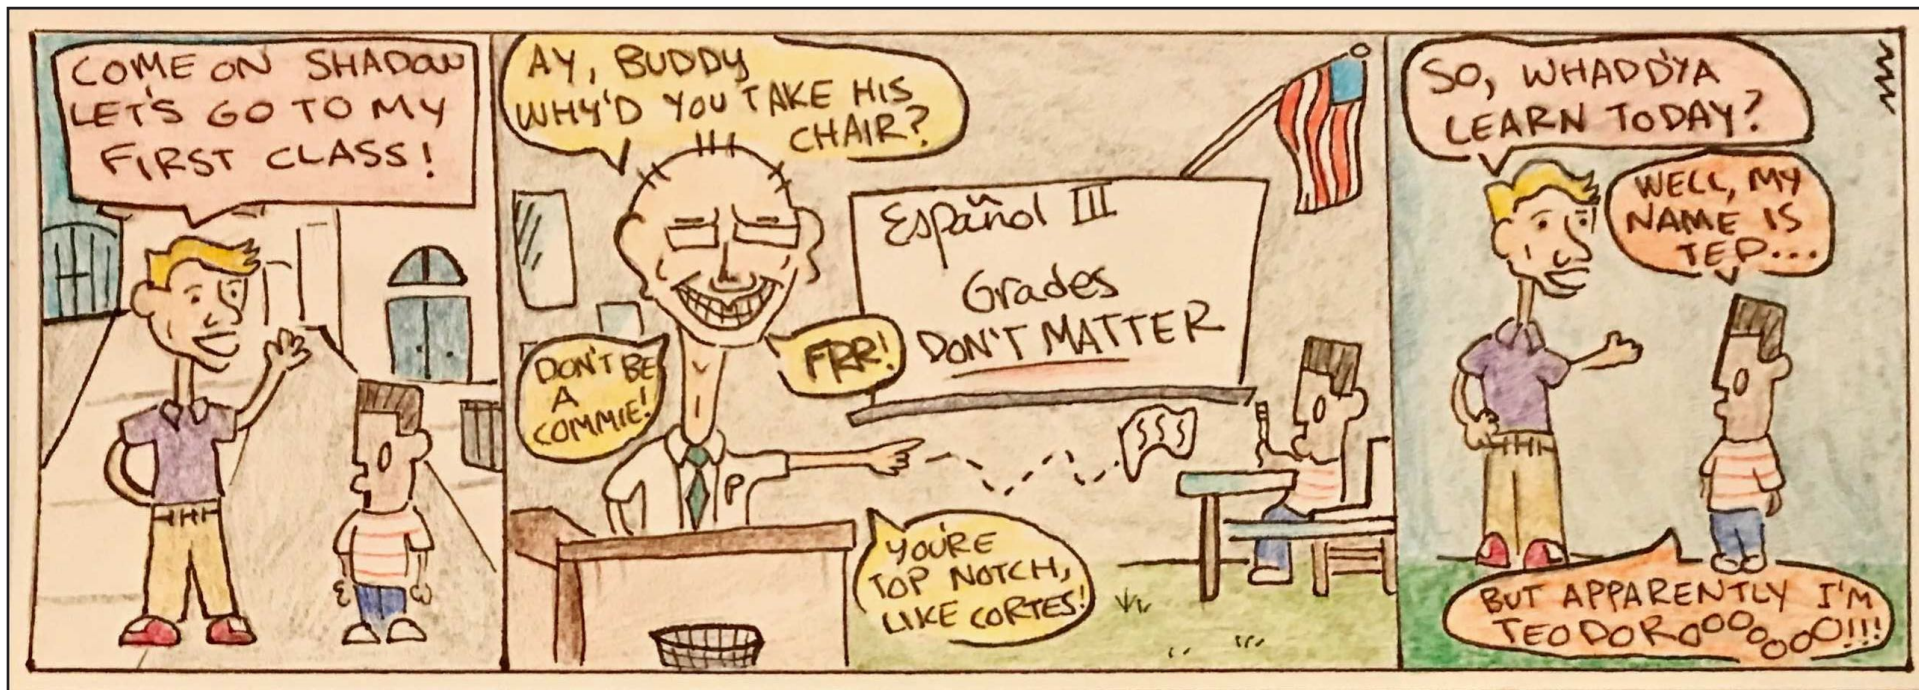 COME ON SHADOW
LET'S GO TO MY
FIRST CLASS!
AY, BUDDY
WHY'D YOU TAKE HIS
CHAIR?
Español III
Grades
DON'T MATTER
DON'T BE
A
COMMIE!
FRR!
$$$
P
YOU'RE
TOP NOTCH,
LIKE CORTES!
SO, WHADD'YA
LEARN TODAY?
WELL, MY
NAME IS
TED...
BUT APPARENTLY I'M
TEODOROOOOOOO!!!